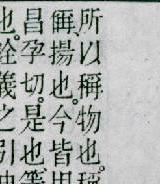 所以稱物也。稱
偁、揚也。今皆用
昌孕切。是也。等
也。銓義之引